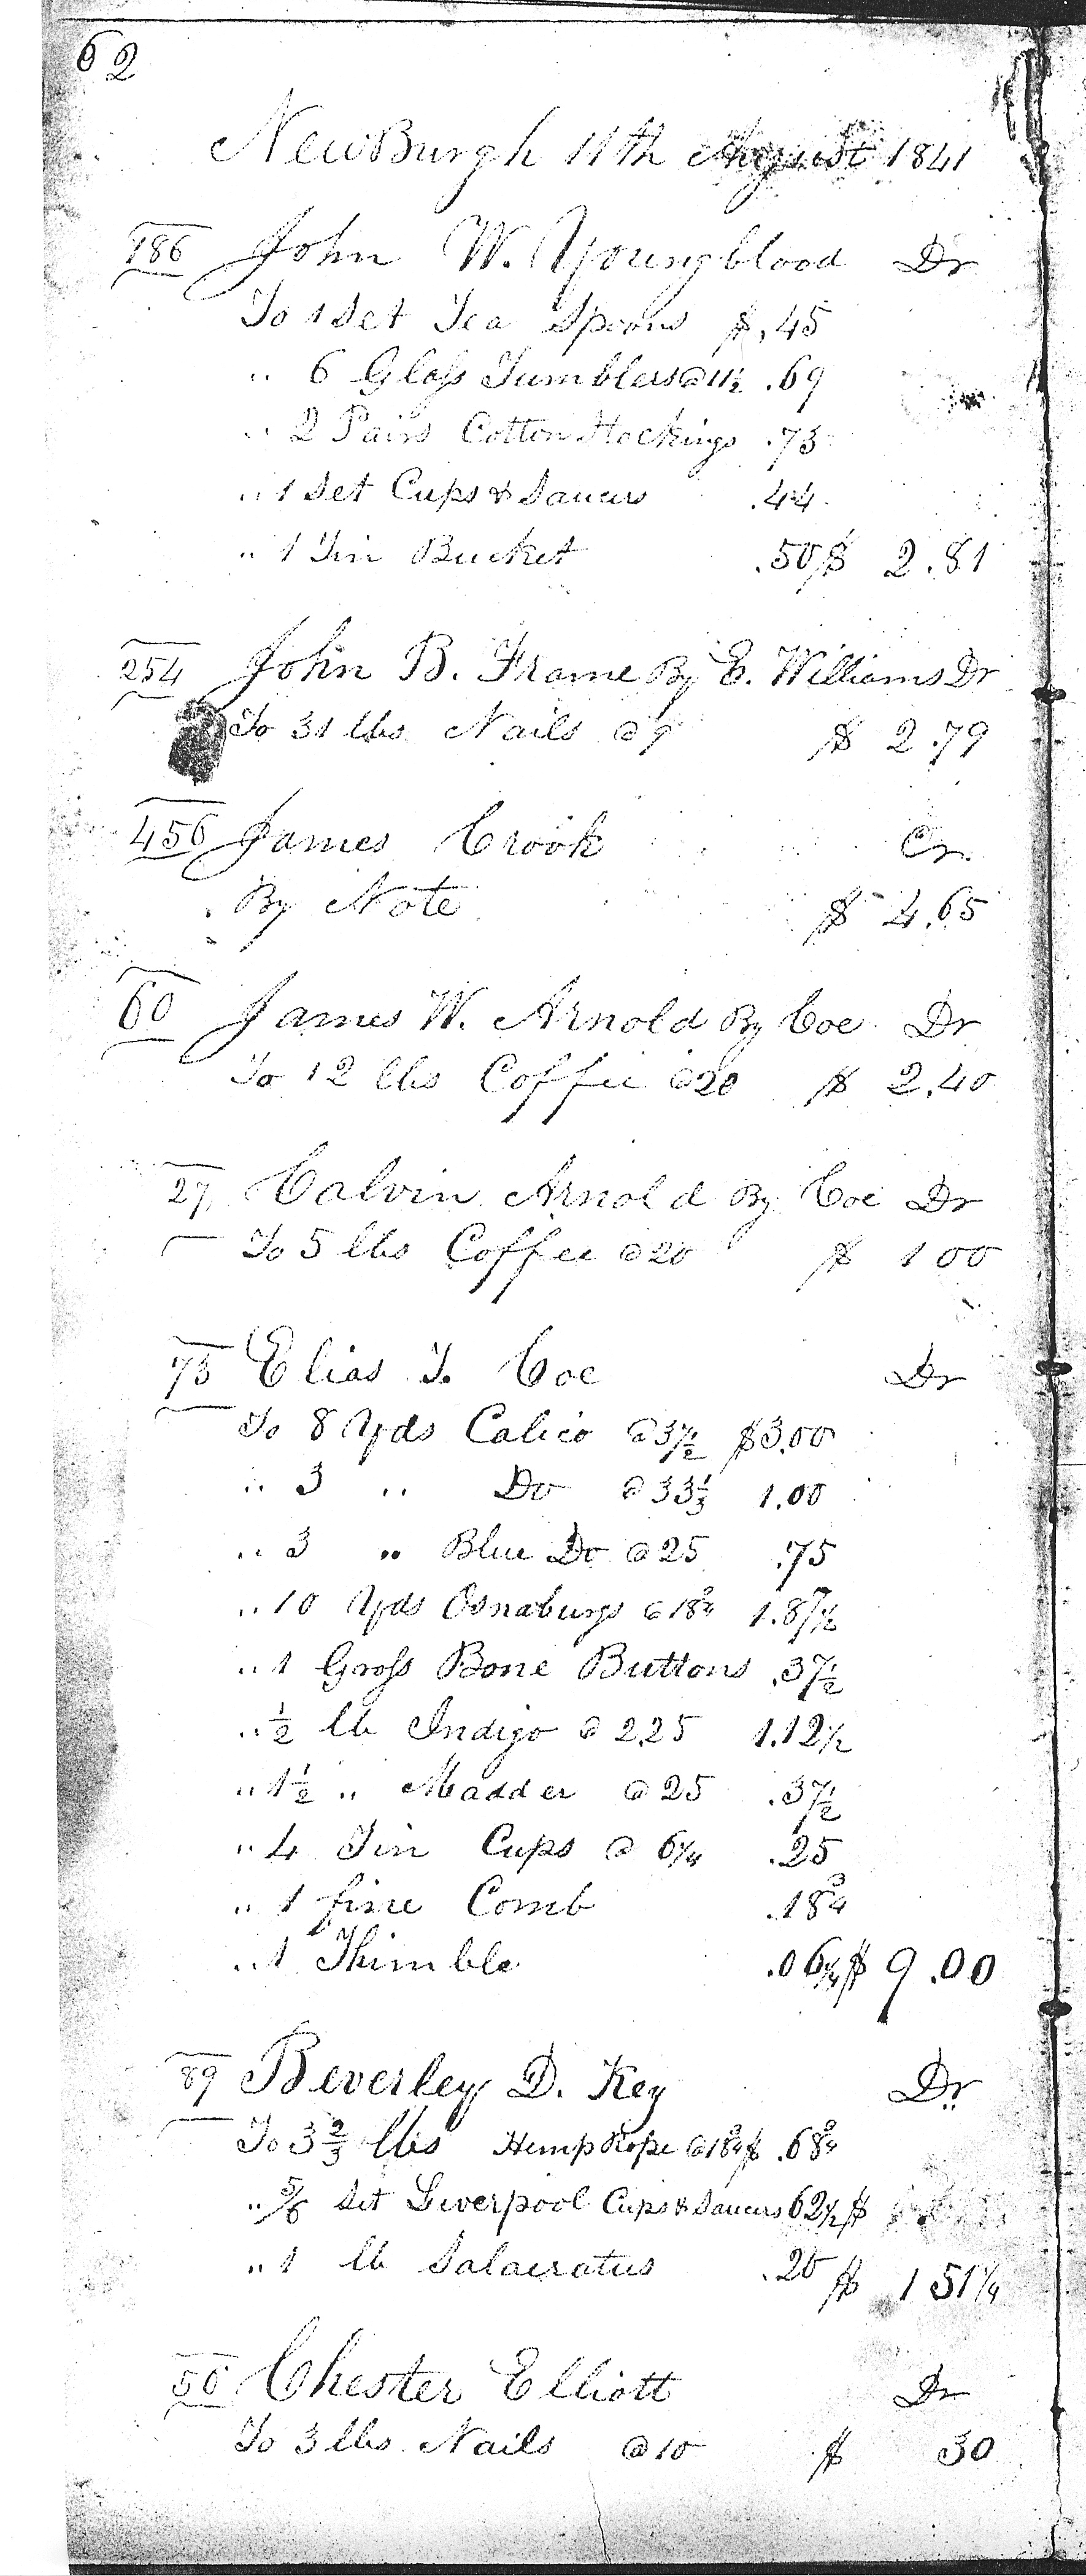 62
NewBurgh 11th August 1841
186 John W. Youngblood Dr
To 1 Set Tea Spoons $ .45
" 6 Glass Tumblers @ 11½ .69
" 2 Pairs Cotton Stockings .73
" 1 Set Cups & Saucers .44
" 1 Tin Bucket .50 $ 2.81
254 John B. Frame By E. Williams Dr
To 31 lbs Nails @ 9 $ 2.79
456 James Crook Cr
By Note $ 4.65
60 James W. Arnold By Coe Dr
To 12 lbs Coffee @ 20 $ 2.40
27 Calvin Arnold By Coe Dr
To 5 lbs Coffee @ 20 $ 1 00
75 Elias T. Coe Dr
To 8 Yds Calico @ 37½ $3.00
" 3 " Do @ 33⅓ 1.00
" 3 " Blue Do @ 25 .75
" 10 Yds Osnaburgs @ 18¾ 1.87½
" 1 Gross Bone Buttons .37½
" ½ lb Indigo @ 2.25 1.12½
" 1½ " Madder @ 25 .37½
" 4 Tin Cups @ 6¼ .25
" 1 fine Comb .18¾
" 1 Thimble .06¼ $ 9.00
89 Beverley D. Key Dr
To 3⅔ lbs Hemp Rope @ 18¾ $ .68¾
" 5/6 Set Liverpool Cups & Saucers 62½ $
" 1 lb Salaeratus .20 $ 1 51¼
50 Chester Elliott Dr
To 3 lbs Nails @ 10 $ 30